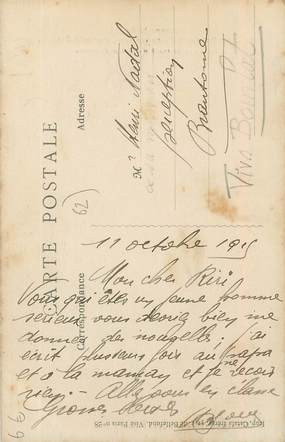 CARTE POSTALE
Correspondance
Adresse
Mr Henri Nadal
perception
Brantôme
62)
11 octobre 1915
Mon cher Riri
Vous qui êtes un jeune homme
sérieux vous devriez bien me
donner des nouvelles, j'ai
écrit plusieurs fois au papa
et à la maman et je reçois
rien. Allez vous en classe